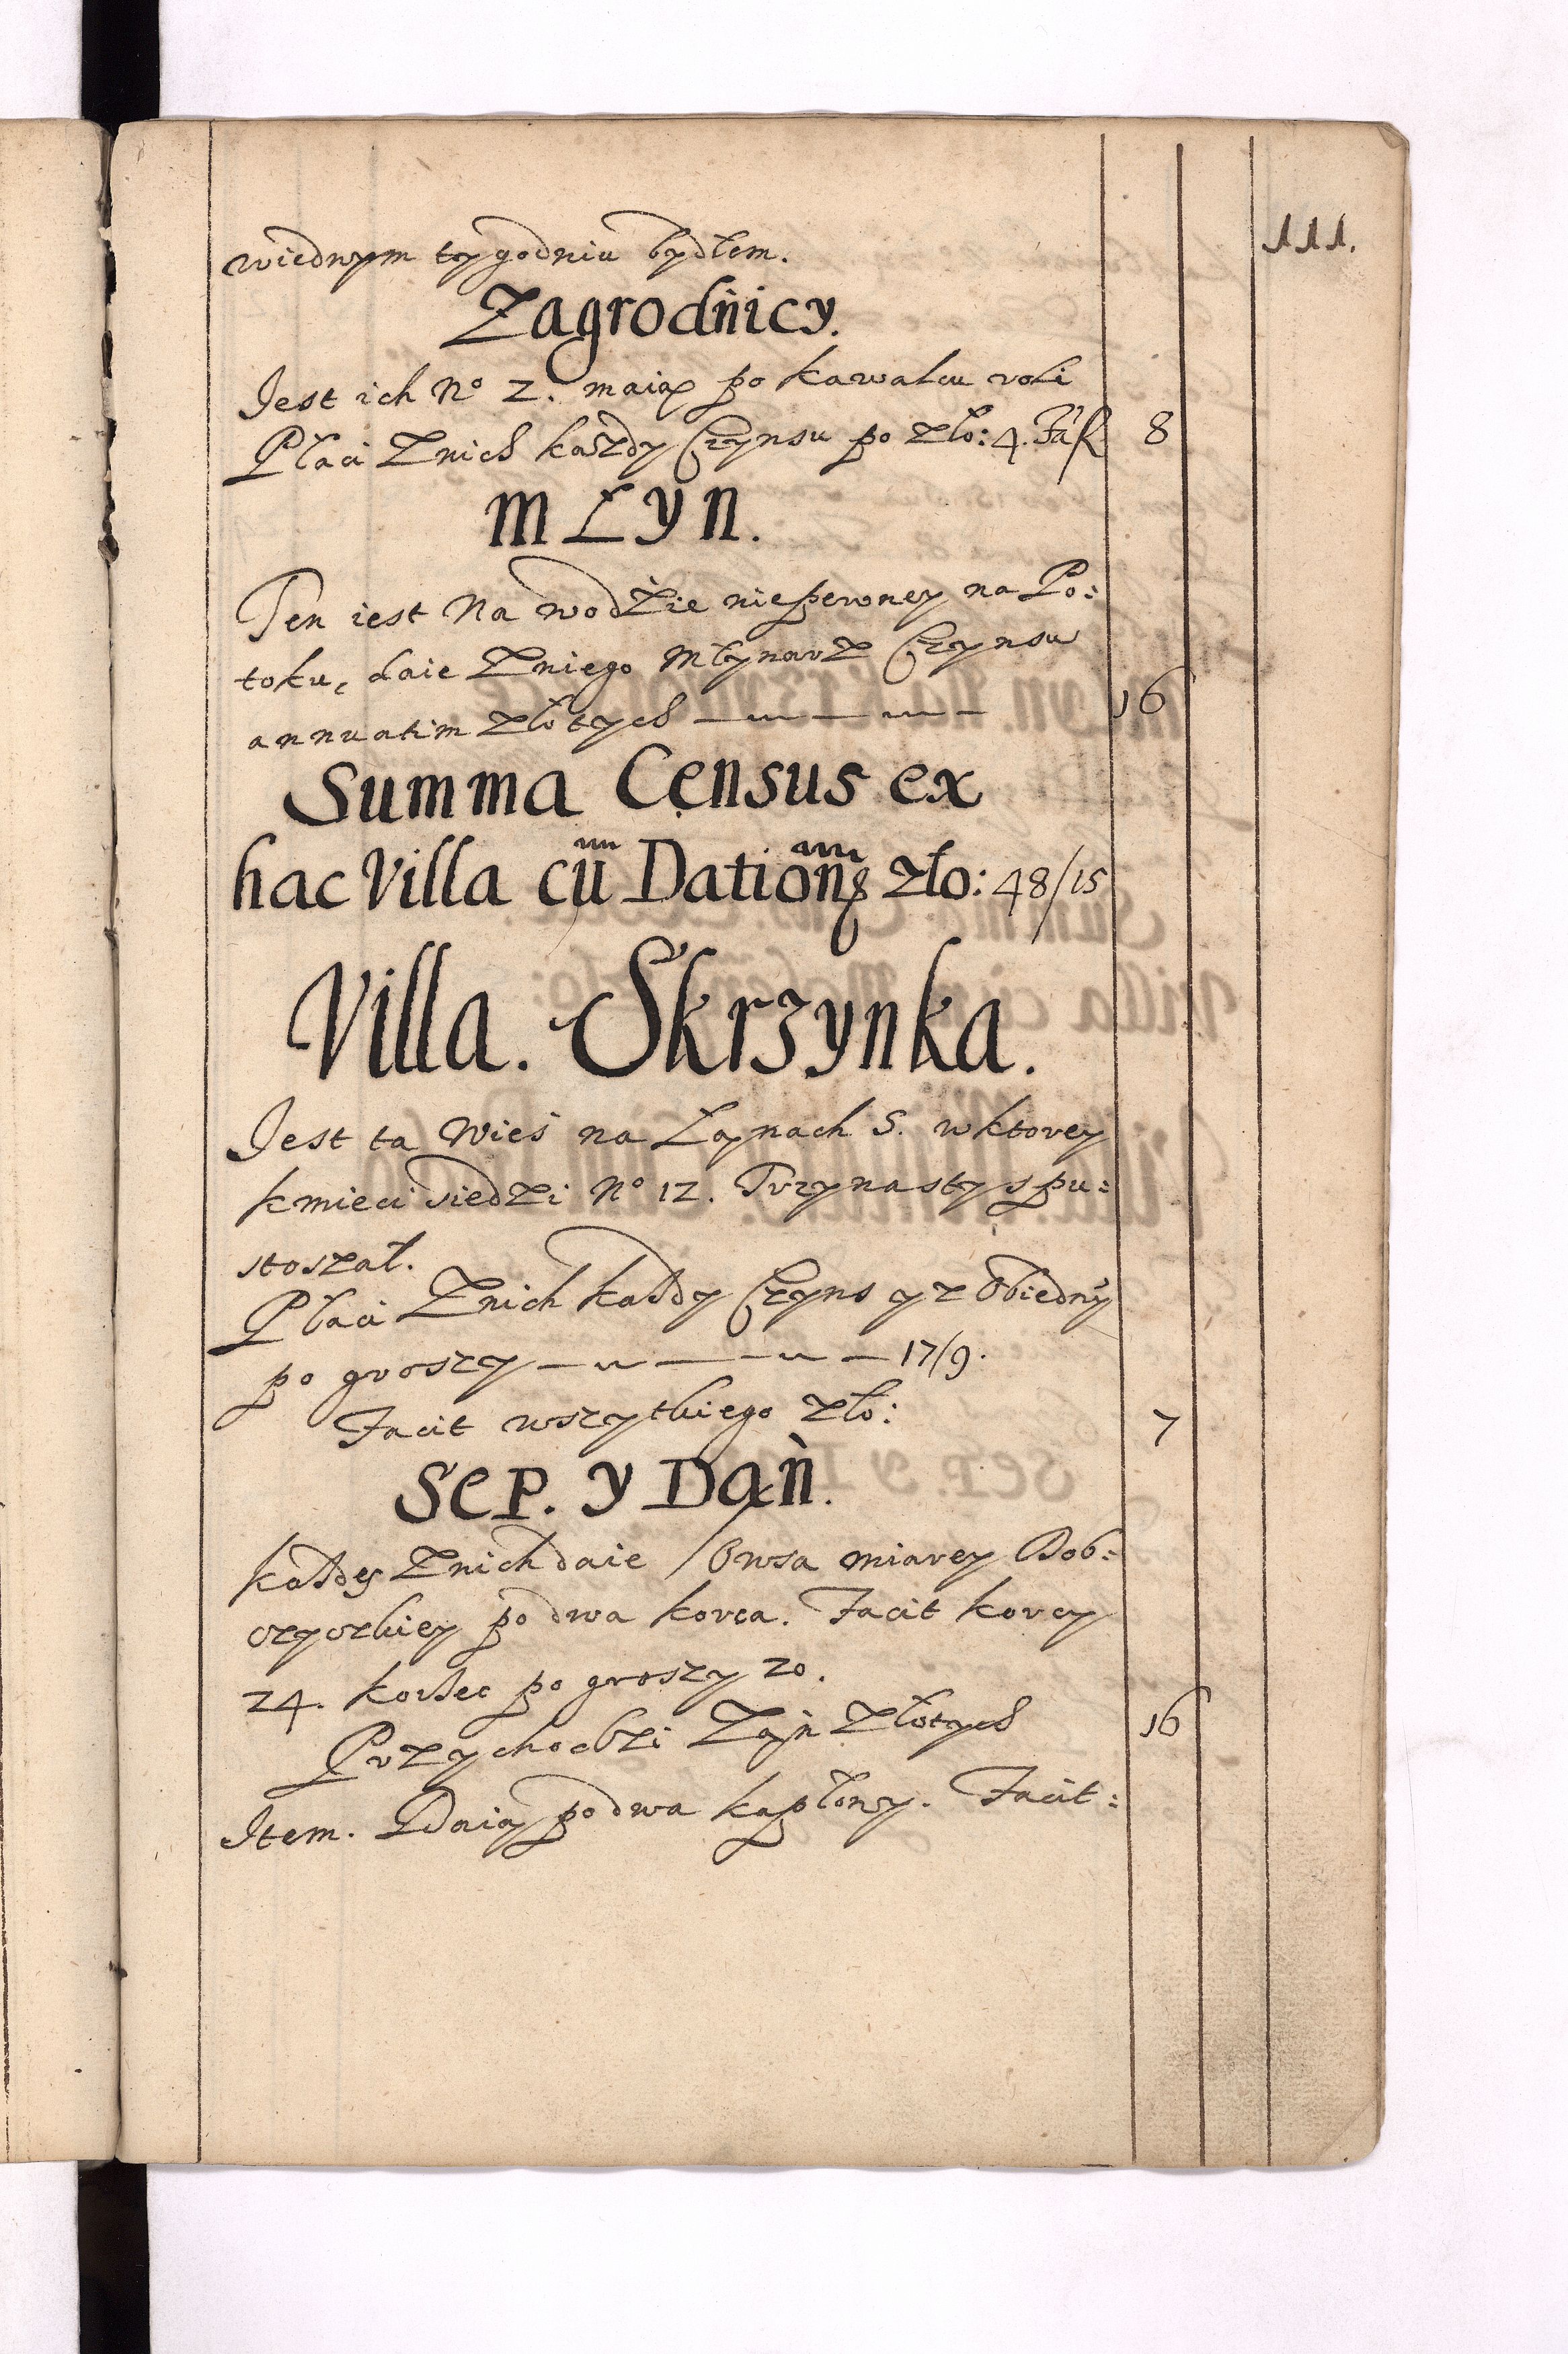 111.
wiednym tygodniu bydłem.
Zagrodnicy.
Jest ich No 2. maią po kawalcu roli
Płaci Znich kaszdy Czynsu po zło: 4. Fa͠c 8
MŁyn.
Ten iest Na wodzie niepewney na Po:
toku, daie Zniego Młynarz Czynsu
annuatim złotych — — — 16
Summa Census ex
hac Villa cũ Dationg zło: 48/15
Villa. Skrzynka.
Jest ta Wieś na Łanach 5. wktorey
kmieci siedzi No 12. Trzynasty spu:
stoszał.
Płaci Znich każdy Czyns y z Obiedny
po groszy — — — 17/9.
Facit wszytkiego zło: 7
Sep. y Dań.
każdy Znich daie / Owsa miarey Dob:
czyczkiey po dwa korca. Facit korcy
24. korzec po groszy 20.
Przychodzi Zań Złotych 16
Item. Daią po dwa kapłony. Facit: